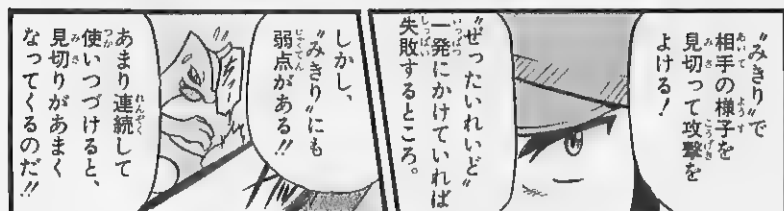 〝みきり〟で
相手の様子を
見切って攻撃を
よける！
〝ぜったいれいど〟
一発にかけていれば
失敗するところ。
しかし、
〝みきり〟にも
弱点がある!!
あまり連続して
使いつづけると、
見切りがあまく
なってくるのだ!!